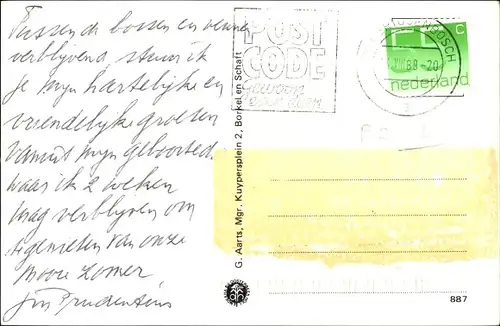 Tussen de bossen en vennen
verblijvend stuur ik
je mijn hartelijke en
vriendelijke groeten
vanuit mijn geboorted.
waar ik 2 weken
mag verblijven om
te genieten van onze
mooie zomer
POST
CODE
gewoon
even doen
C
nederland
G. Aarts, Mgr. Kuypersplein 2, Borkel en Schaft
887